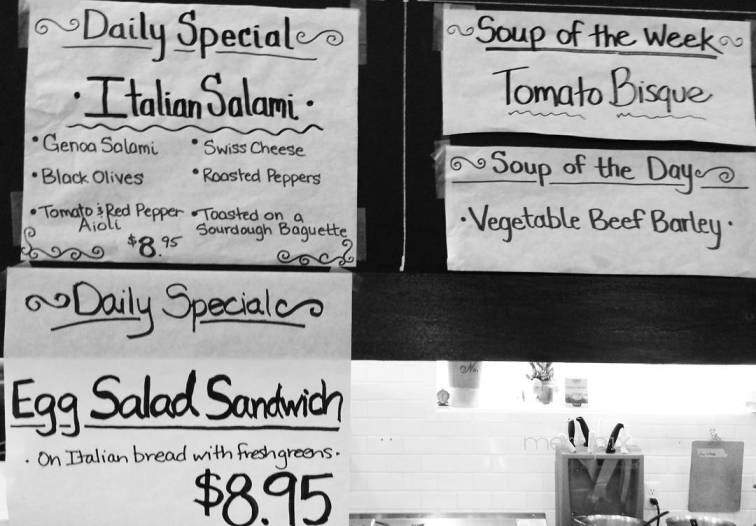 Daily Special
• Italian Salami •
• Genoa Salami
• Swiss Cheese
• Black Olives
• Roasted Peppers
• Tomato & Red Pepper
Aioli
• Toasted on a
Sourdough Baguette
$8.95
Daily Special
Egg Salad Sandwich
• On Italian bread with fresh greens •
$8.95
Soup of the Week
Tomato Bisque
Soup of the Day
• Vegetable Beef Barley •